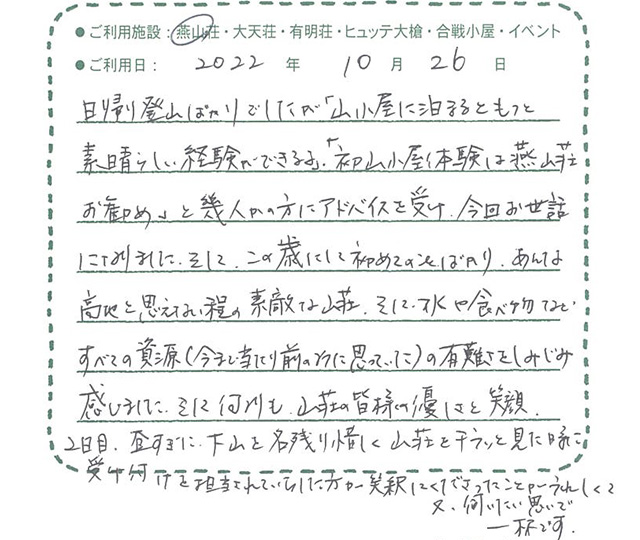 ●ご利用施設：燕山荘・大天荘・有明荘・ヒュッテ大槍・合戦小屋・イベント
●ご利用日： 2022 年 10 月 26 日
日帰り登山ばかりでしたが「山小屋に泊まるともっと
素晴らしい経験ができるよ」「初山小屋体験は燕山荘
お勧め」と幾人かの方にアドバイスを受け、今回お世話
になりました。そして、この歳にして初めてのことばかり、あんな
高地と思えない程の素敵な山荘、そして水や食べ物など
すべての資源(今まで当たり前のように思っていた)の有難さをしみじみ
感じました。そして何よりも、山荘の皆様の優しさと笑顔。
2日目、昼すぎに、下山を名残り惜しく山荘をチラッと見た時に
受付付けを担当されていらした方が笑釈してくださったことがうれしくて
又、伺いたい思いで
一杯です。